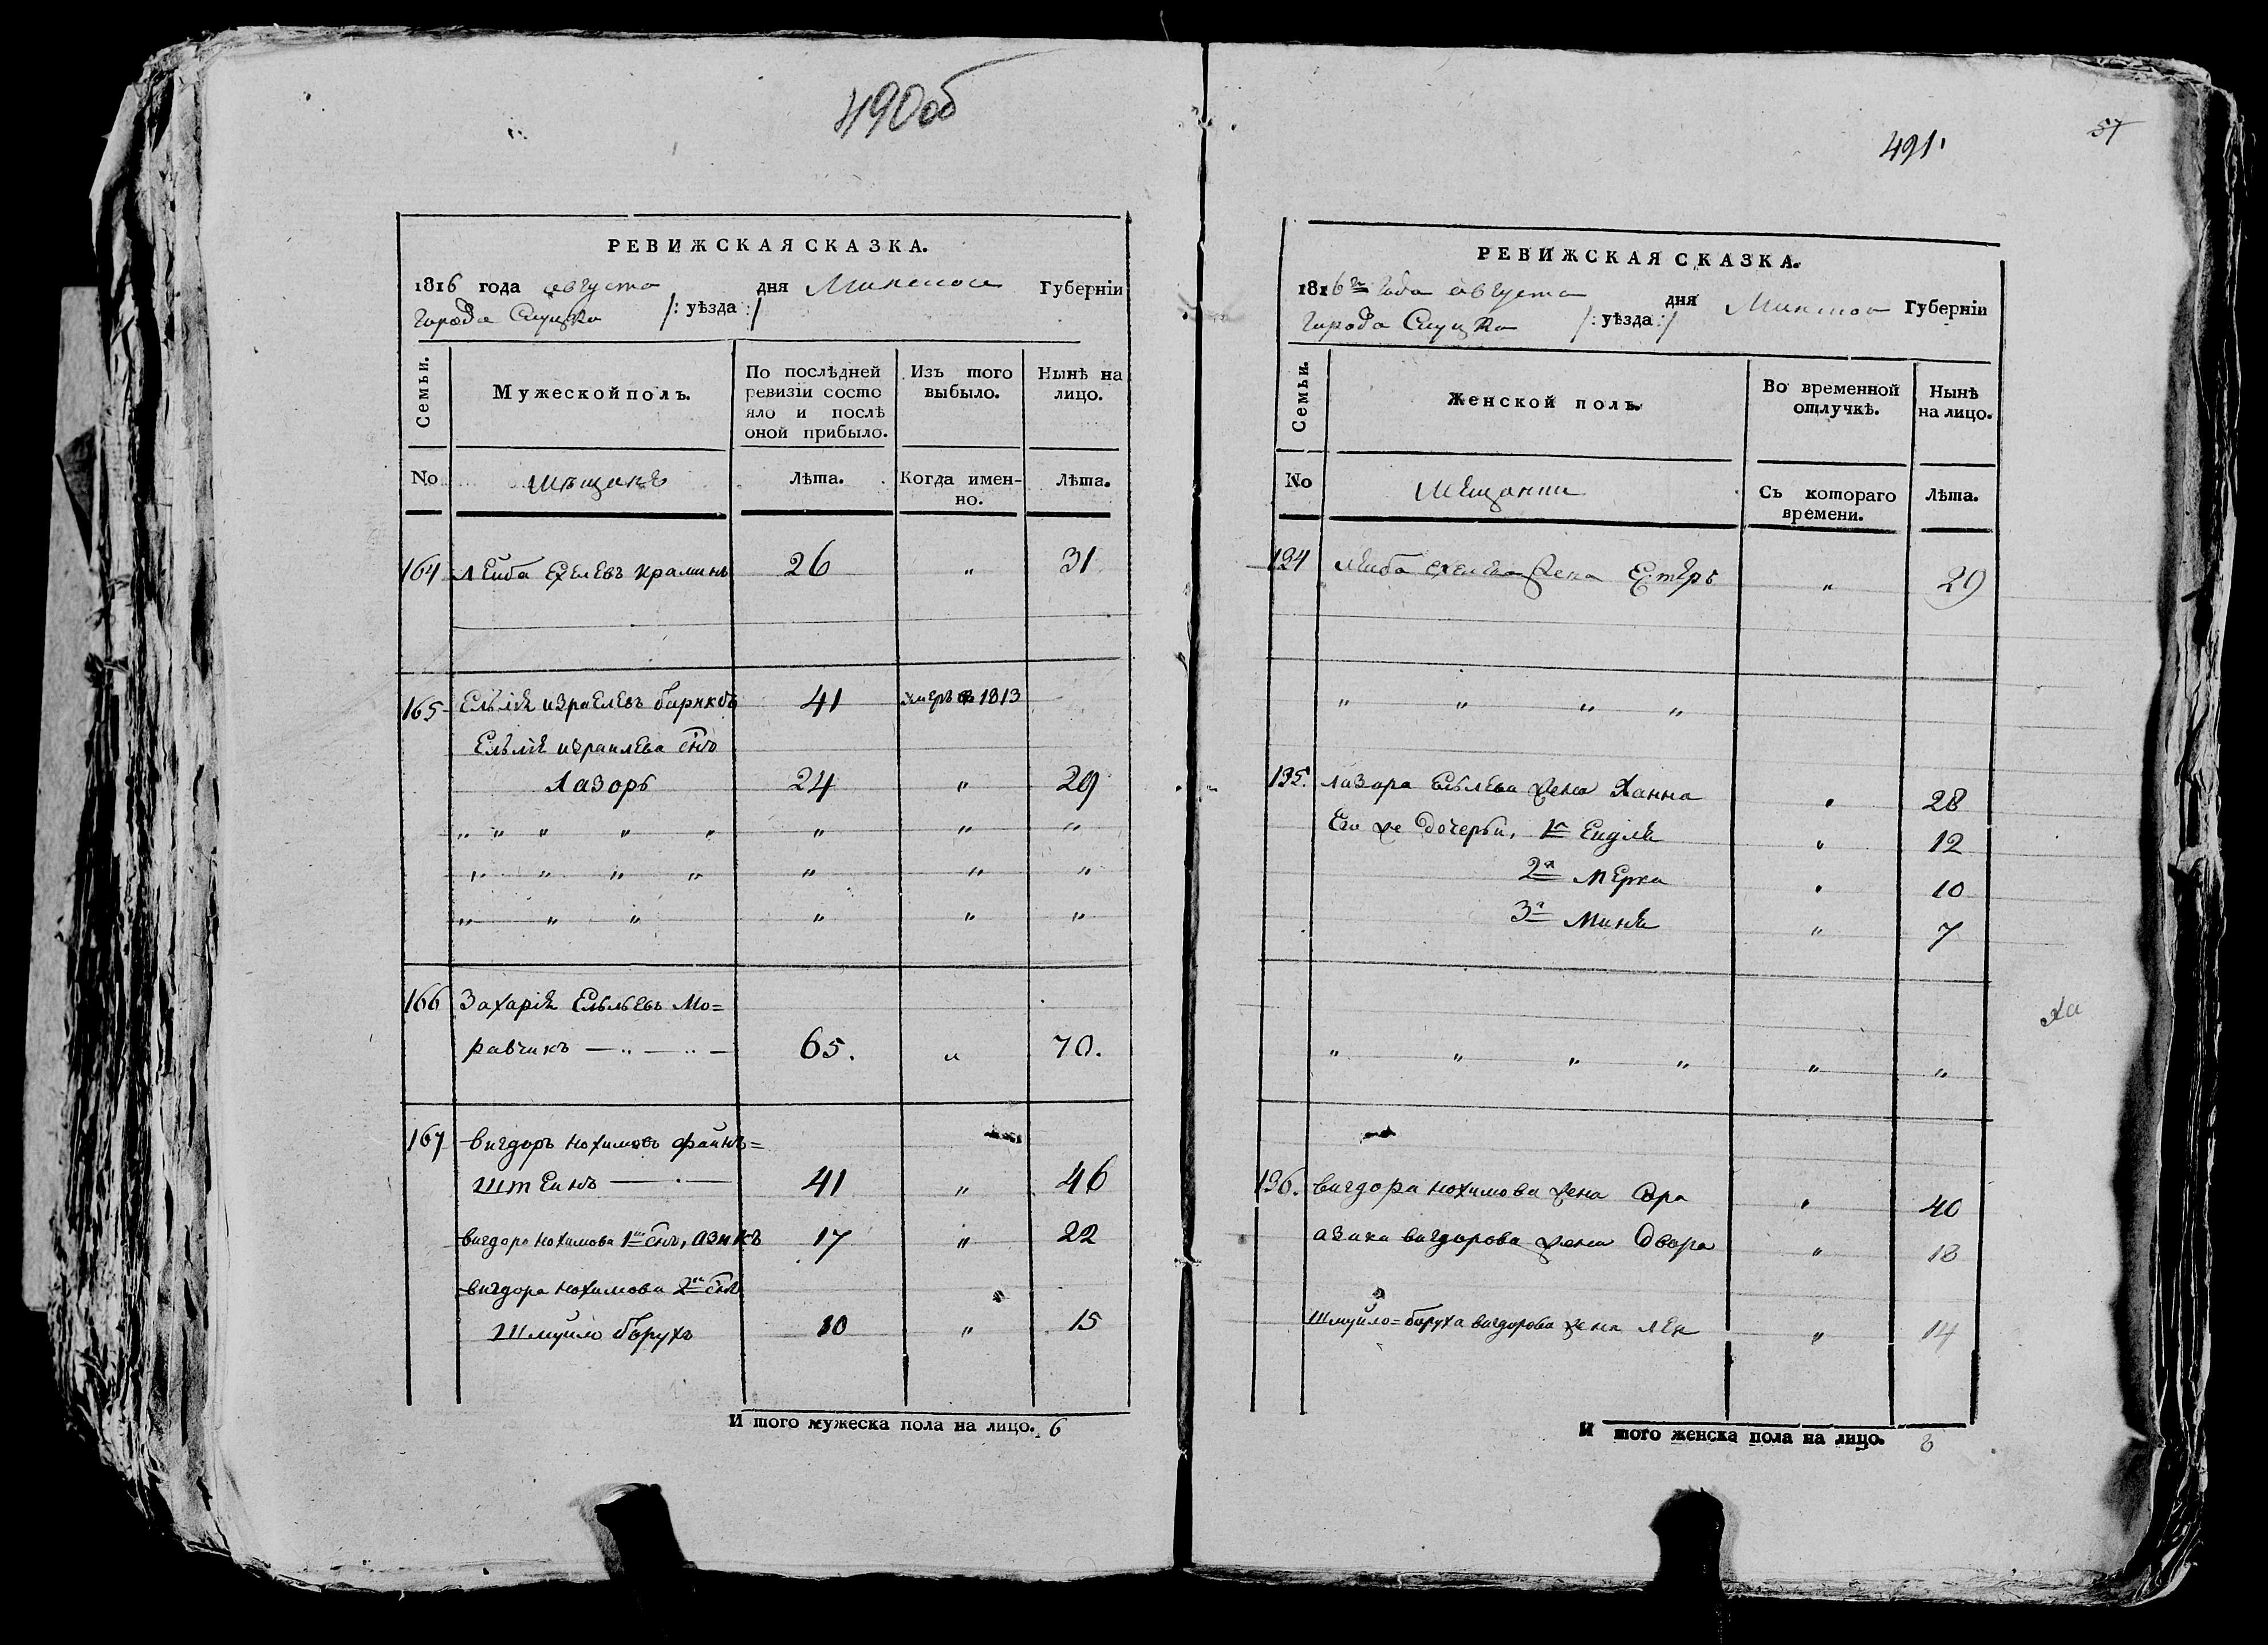 490об
РЕВИЖСКАЯ СКАЗКА.
1816 года августа дня Минской Губерніи
города Слуцка /: уѣзда :/
Семьи.
Мужеской полъ.
По послѣдней ревизіи состо
яло и послѣ оной прибыло.
Изъ того выбыло.
Нынѣ на лицо.
No мѣщанъ Лѣта. Когда имен-но. Лѣта.
164 Лейба Ехелевъ Краминъ 26 " 31
165 Ельліѣ израелевъ 41 умеръ в 1813
Ельліѣ израилева снъ
Лазоръ 24 " 29
" " " " " " " "
" " " " " " "
" " " " " "
166 Захаріѣ Ельльевъ Мо=
равчикъ — " — " — 65. " 70.
167 вигдоръ нохимовъ файнъ=
штеинъ — · — 41 " 46
вигдора нохимова 1й снъ, азикъ 17 " 22
вигдора нохимова 2й снъ
Шмуйло Борухъ 10 " 15
И того мужеска пола на лицо. 6
491 57
РЕВИЖСКАЯ СКАЗКА.
1816го года августа дня Минской Губерніи
города Слуцка /: уѣзда :/
Семьи.
Женской полъ.
Во временной отлучкѣ.
Нынѣ на лицо.
No Съ котораго времени. Лѣта.
124 Лейба ехелева жена Етѣръ " 29
" " " "
125. лазора Ельлева жена Ханна " 28
Его же дочерьи, 1я Ейдля " 12
2я Мерка " 10
3я Миня " 7
" " " " " "
126. вигдора нохимова жена Сора " 40
азика вигдорова жена Двора " 18
Шмуйло=боруха вигдорова жена Лея " 14
И того женска пола на лицо. 8